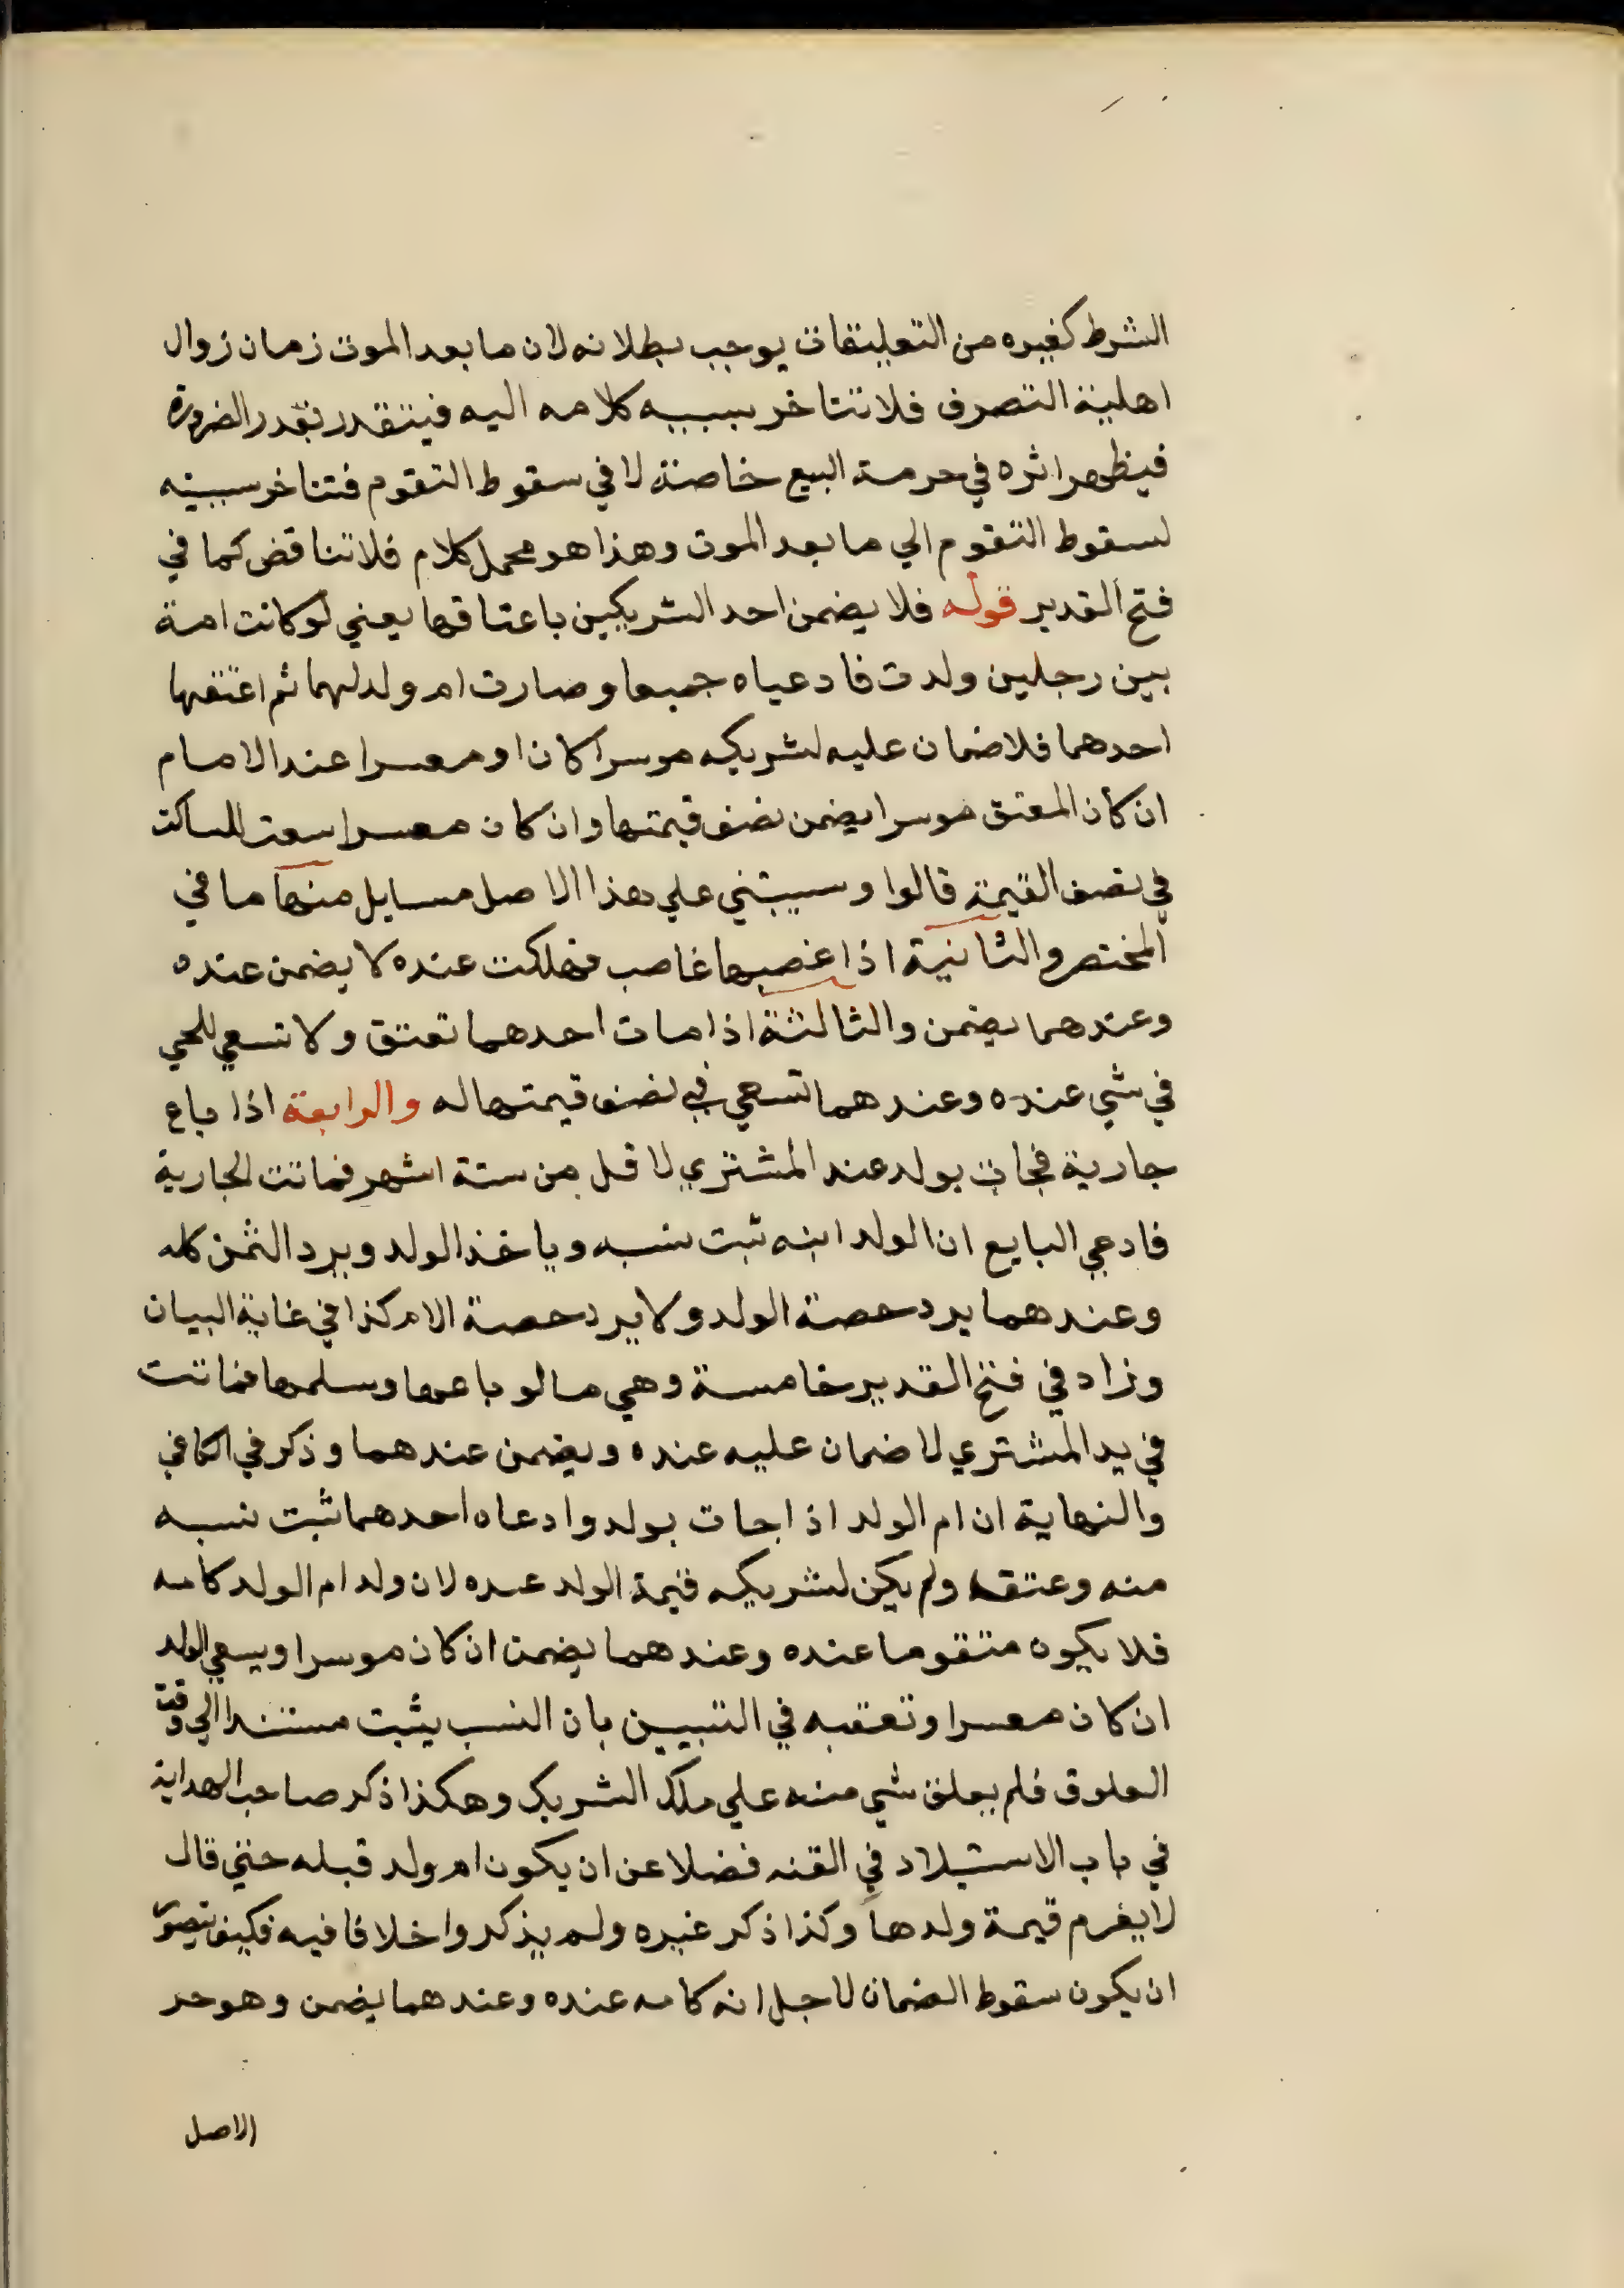 الشرط كغيره من التعليقات يوجب بطلانه لان ما بعد الموت زمان زوال
اهلية التصرف فلا تتاخر سببيه كلامه اليه فيتقدر بقدر الضرورة
فيظهر اثره في حرمة البيع خاصة لا في سقوط التقوم فتتاخر سببيته
لسقوط التقوم الي ما بعد الموت وهذا هو محمل كلام فلا تناقض كما في
فتح القدير قوله فلا يضمن احد الشريكين باعتاقها يعني لو كانت امة
بين رجلين ولدت فادعياه جميعا وصارت ام ولد لهما ثم اعتقها
احدهما فلا ضمان عليه لشريكه موسرا كان او معسرا عند الامام
ان كان المعتق موسرا يضمن نصف قيمتها وان كان معسرا سعت للساكت
في نصف القيمة قالوا وسيبتني علي هذا الاصل مسايل منها ما في
المختصر والثانية اذا غصبها غاصب فهلكت عنده لا يضمن عنده
وعندهما يضمن والثالثة اذا مات احدهما تعتق ولا تسعي للحي
في شي عنده وعندهما تسعي في نصف قيمتها له والرابعة اذا باع
جارية فجات بولد عند المشتري لاقل من ستة اشهر فماتت الجارية
فادعي البايع ان الولد ابنه ثبت نسبه وياخذ الولد ويرد الثمن كله
وعندهما يرد حصة الولد ولا يرد حصة الام كذا في غاية البيان
وزاد في فتح القدير خامسة وهي ما لو باعها وسلمها فماتت
في يد المشتري لا ضمان عليه عنده ويضمن عندهما وذكر في الكافي
والنهاية ان ام الولد اذا جات بولد وادعاه احدهما ثبت نسبه
منه وعتقه ولم يكن لشريكه قيمة الولد عنده لان ولد ام الولد كامه
فلا يكون متقوما عنده وعندهما يضمن ان كان موسرا ويسعي الولد
ان كان معسرا وتعقبه في التبيين بان النسب يثبت مستندا الي وقت
العلوق فلم يعلق شي منه علي ملك الشريك وهكذا ذكر صاحب الهداية
في باب الاستيلاد في القنه فضلا عن ان يكون ام ولد قبله حتي قال
لا يغرم قيمة ولدها وكذا ذكر غيره ولم يذكروا خلافا فيه فكيف يتصور
ان يكون سقوط الضمان لاجل انه كامه عنده وعندهما يضمن وهو حر
الاصل